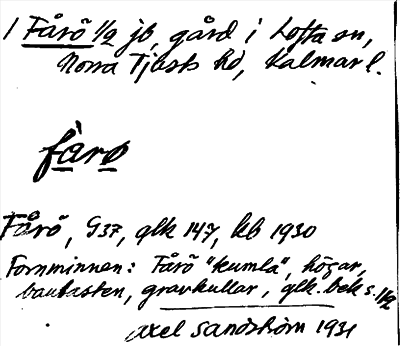 1 Fårö 1/2 jb, gård i Lofta sn,
Norra Tjusts hd, Kalmar l.
fàrø
Fårö, G37, glk 147, kb 1930
Fornminnen: Fårö "kumla", högar,
bautasten, gravkullar, glk. bek s. 1/2
Axel Sandström 1931